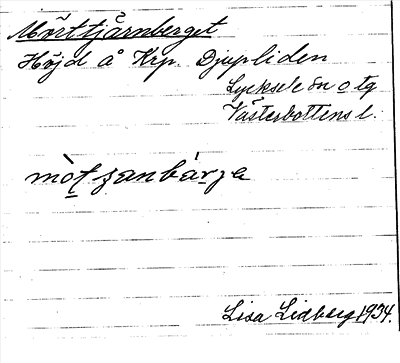 Mörttjärnberget
Höjd å Krp. Djupliden
Lycksele sn o tg
Västerbottens l.
mòt̯ʒanbárʒa
Lisa Lidberg 1934.